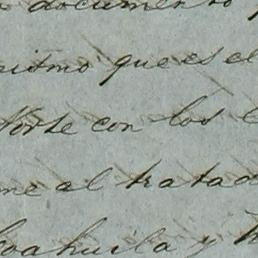 documento
que es el
Norte con los
me al tratad
Coahuila y